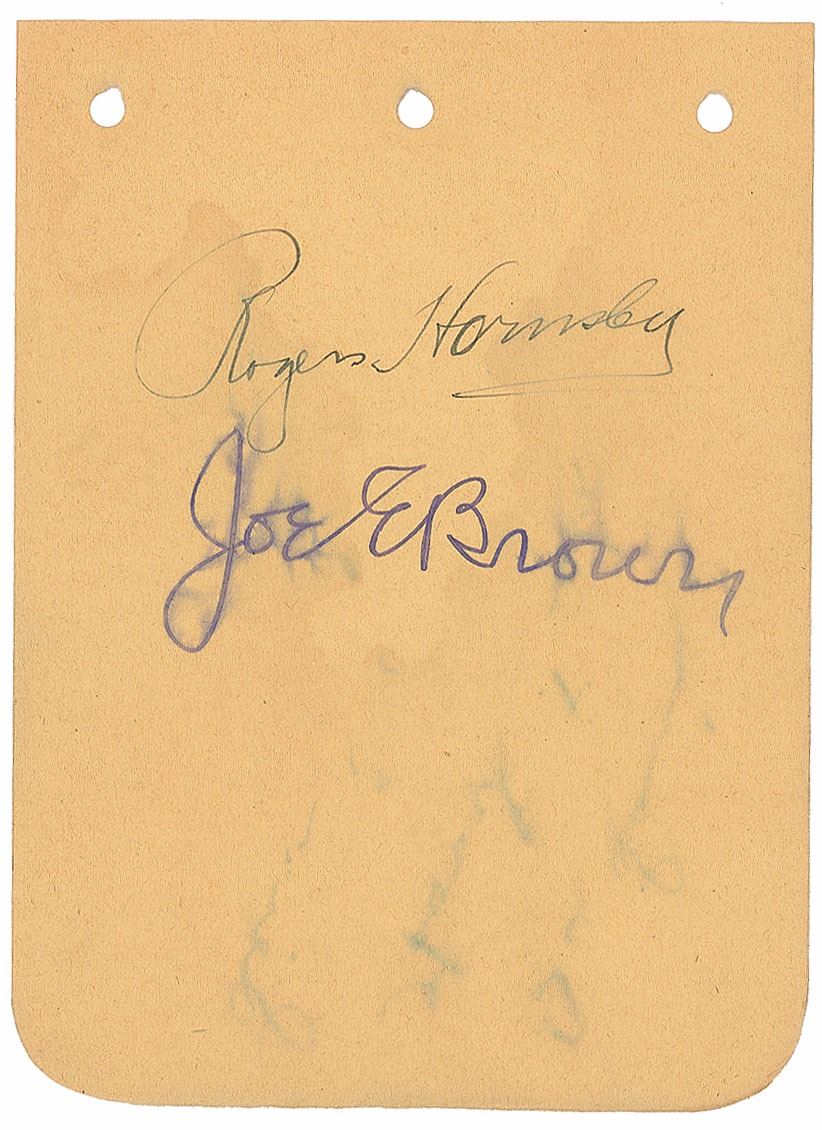 Rogers Hornsby
Joe E Brown